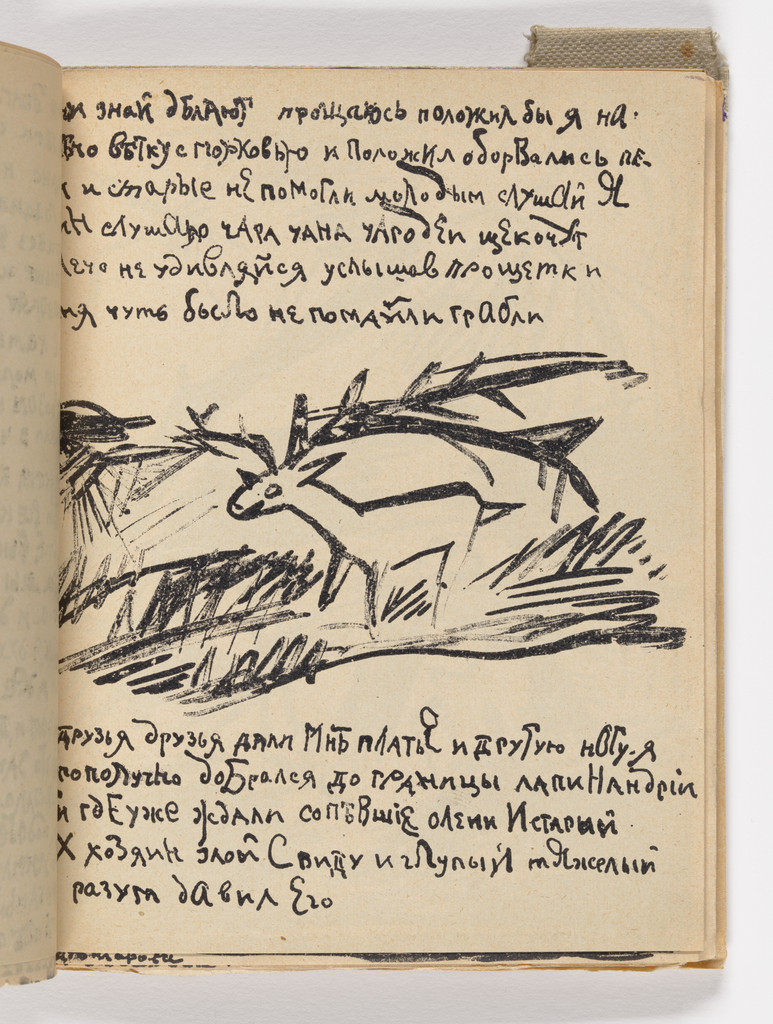 знай дѣлают прощаюсь положил бы я на
вѣтку с морковью и положил оборвались пе-
и старые не помогли молодым слушай я
слушаю чара чана чародеи щекочут
не удивляйся услышав про щетки
чуть было не помдйли грабли
друзья друзья дали мнѣ платье и другую ногу. я
добрался до границы лапиландрiи
й где уже ждали сопѣвшiе олени и старый
х хозяин злой с виду и глупый тяжелый
разум давил его